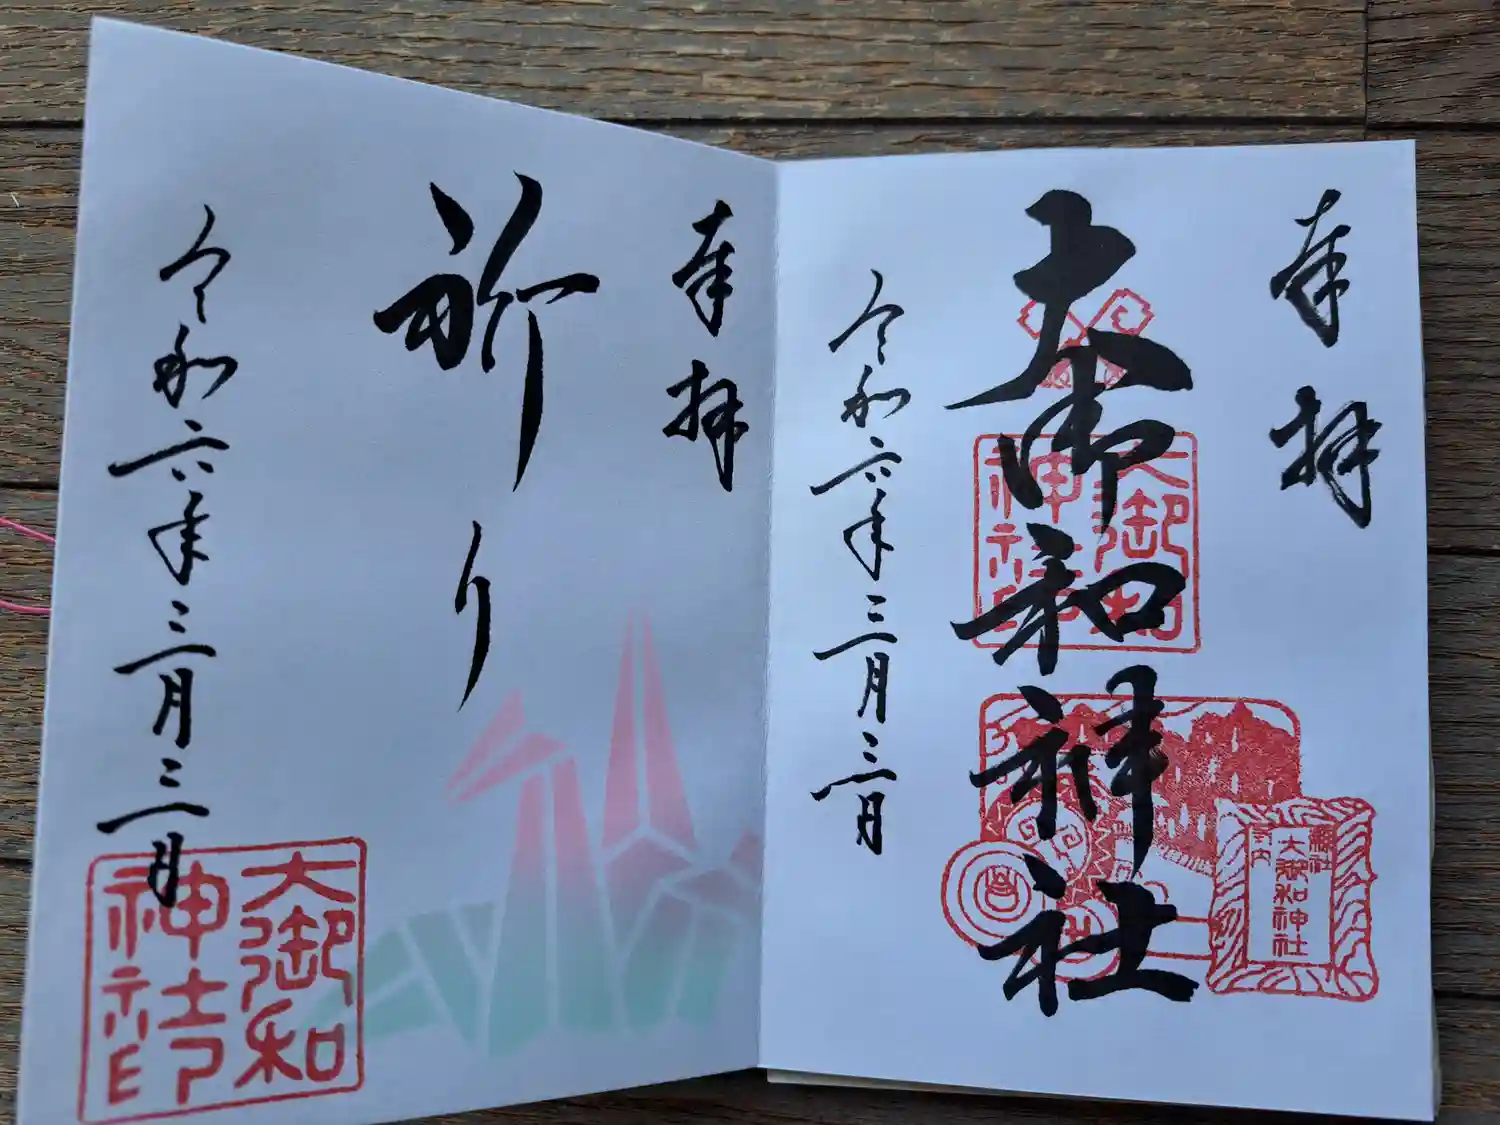 奉拝
大御和神社
令和六年三月三日
大御和
神社印
縣社
大御和神社
府内
奉拝
祈り
令和六年三月三日
大御和
神社印